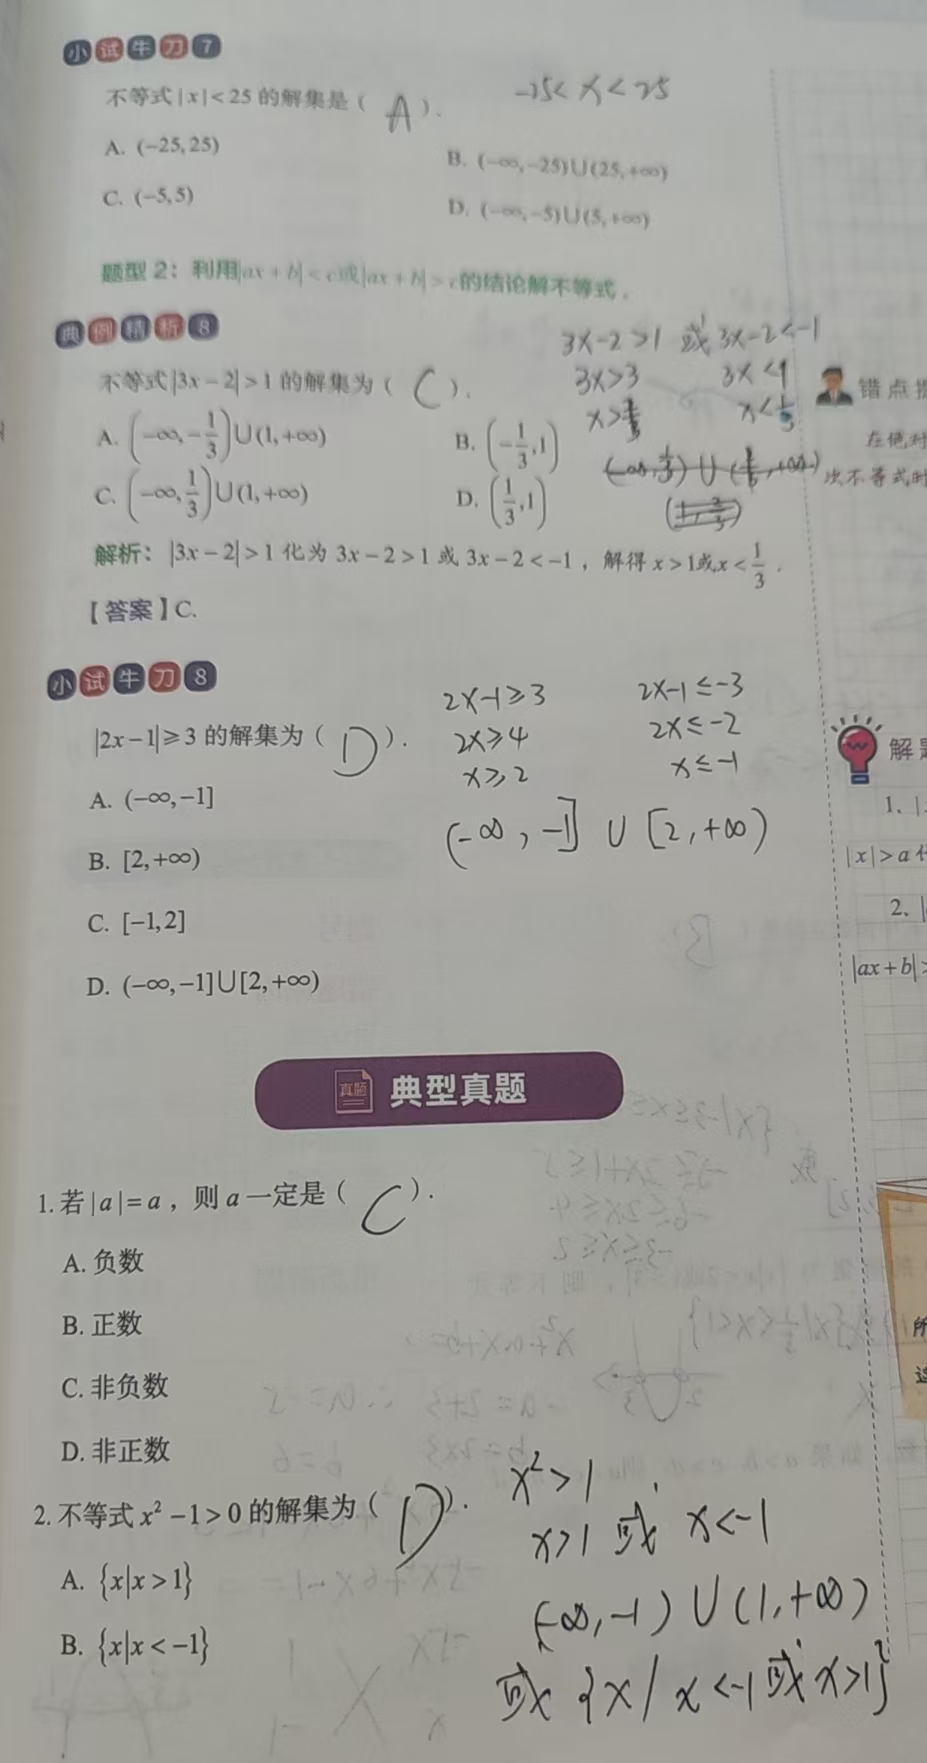 小试牛刀7
不等式|x|<25的解集是( A ).
-25<x<25
A. (-25,25)
B. (-∞,-25)∪(25,+∞)
C. (-5,5)
D. (-∞,-5)∪(5,+∞)
题型2：利用|ax+b|<c或|ax+b|>c的结论解不等式.
典例精析8
3x-2>1 或 3x-2<-1
3x>3 3x<1
x> x<
不等式|3x-2|>1的解集为( C ).
A. (-∞,-1/3)∪(1,+∞)
B. (-1/3,1)
C. (-∞,1/3)∪(1,+∞)
D. (1/3,1)
解析：|3x-2|>1化为3x-2>1或3x-2<-1，解得x>1或x<1/3.
【答案】C.
错点
在绝对
次不等式时
小试牛刀8
|2x-1|≥3的解集为( D ).
2x-1≥3 2x-1≤-3
2x≥4 2x≤-2
x≥2 x≤-1
(-∞,-1]∪[2,+∞)
A. (-∞,-1]
B. [2,+∞)
C. [-1,2]
D. (-∞,-1]∪[2,+∞)
解
1、
|x|>a
2、
|ax+b|>
真题 典型真题
1.若|a|=a，则a一定是( C ).
A.负数
B.正数
C.非负数
D.非正数
2.不等式x²-1>0的解集为( D ).
x²>1
x>1 或 x<-1
(-∞,-1)∪(1,+∞)
或{x|x<-1或x>1}
A. {x|x>1}
B. {x|x<-1}